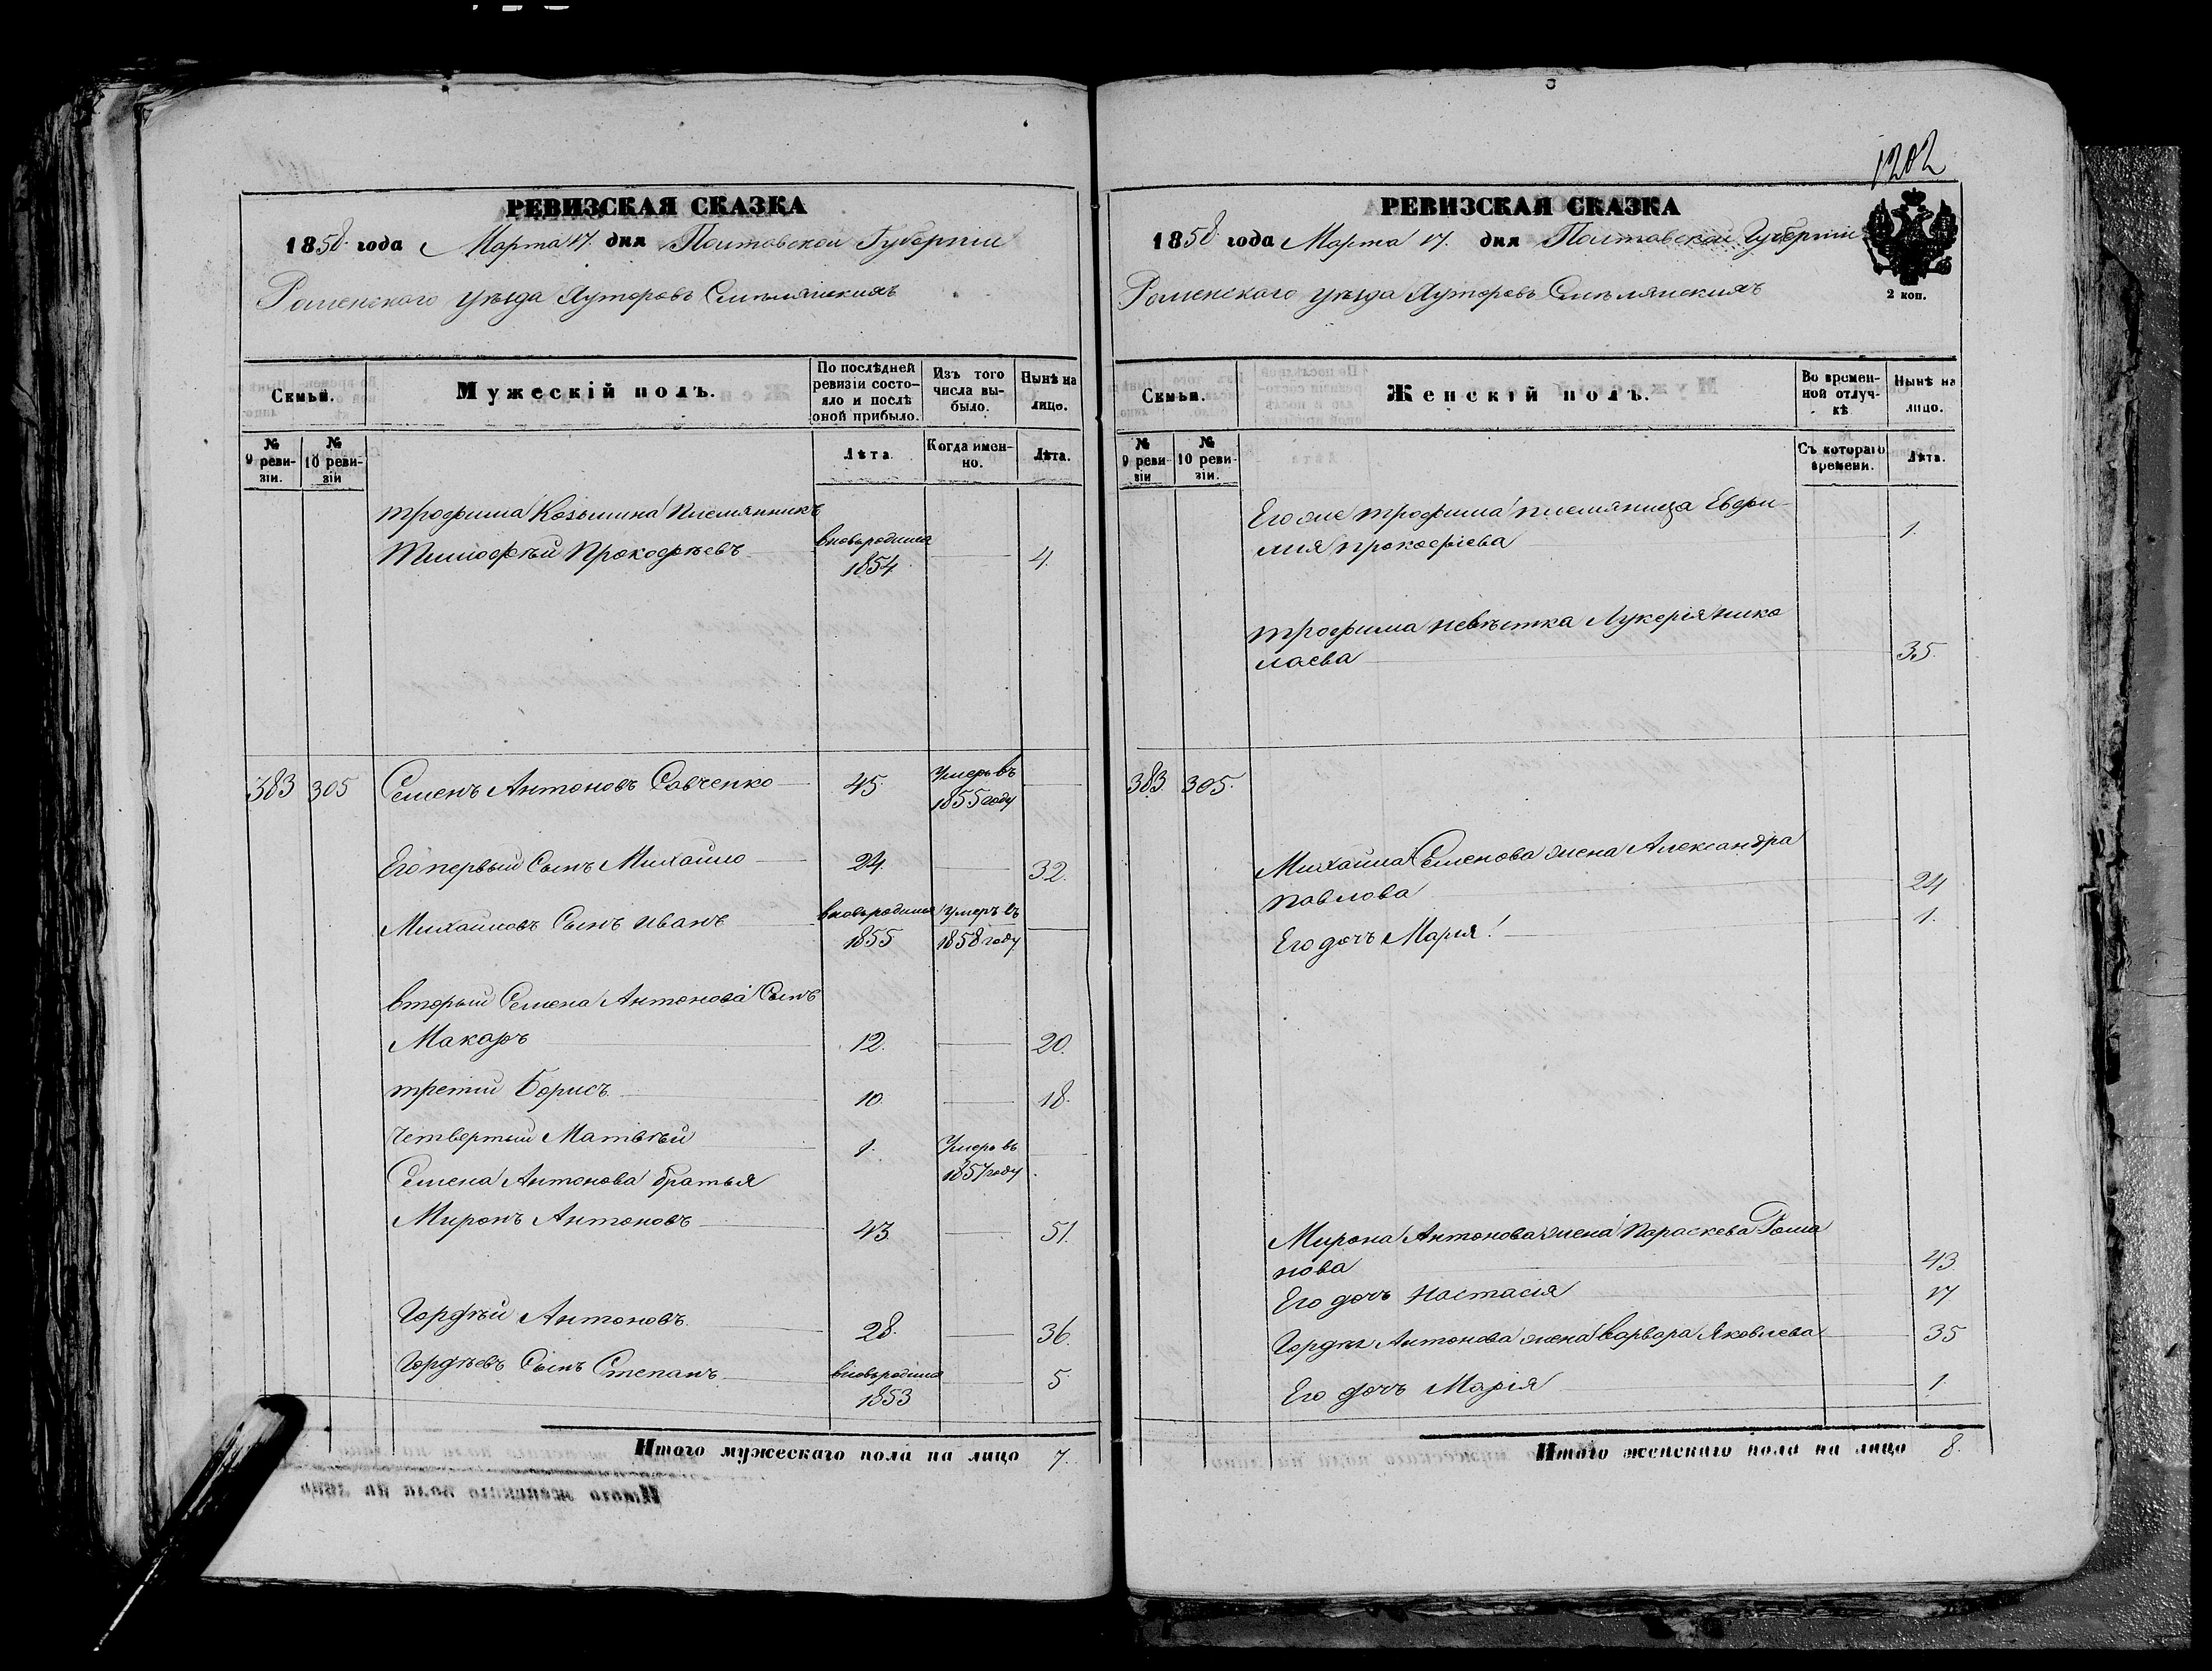 1202
РЕВИЗСКАЯ СКАЗКА
1858 года Марта 17. дня Полтавской Губерніи
Роменского уѣзда Хуторовъ Смѣлянскихъ
Семьи.
Мужескій полъ.
По послѣдней ревизіи состояло и послѣ оной прибыло.
Изъ того числа выбыло.
Нынѣ на лицо.
№ 9 ревизіи.
№ 10 ревизіи
Лѣта
Когда именно.
Лѣта.
трофима Козьмина племянникъ
Тимофѣй Прокофѣевъ вновьродился 1854 4.
383 305 Семенъ Антоновъ Савченко 45 Умеръ въ 1855 году
Его первый Сынъ Михайло 24. 32.
Михайловъ Сынъ Иванъ вновьродился 1855 умеръ въ 1858 году
вторый Семена Антонова Сынъ
Макаръ 12. 20.
третій Борисъ 10 18.
Четвертый Матвѣй 1. Умеръ въ 1857 году
Семена Антонова братья
Миронъ Антоновъ 43 51.
Гордѣй Антоновъ 28. 36.
Гордѣевъ Сынъ Степанъ вновьродился 1853 5
Итого мужескаго пола на лицо 7.
РЕВИЗСКАЯ СКАЗКА
1858 года Марта 17. дня Полтавской Губерніи
Роменского уѣзда Хуторовъ Смѣлянскихъ
2 коп.
Семьи.
Женскій полъ.
Во временной отлучкѣ
Нынѣ на лицо.
№ 9 ревизіи
№ 10 ревизіи.
Съ котораго времени.
Лѣта.
Его же трофима племяница Евфи-
мия прокофіева 1.
трофима невѣстка Лукерія Нико
лаева 35.
383. 305.
Михайла Семенова жена Александра
павлова 24
Его дочь Марія 1.
Мирона Антонова жена Параскева Рома
нова 43
Его дочь Настасія 17
Гордѣя Антонова жена варвара Яковлева 35
Его дочь Марія 1.
Итого женскаго пола на лицо 8.